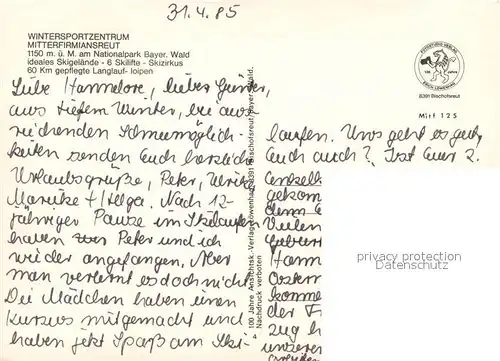 31.4.85
WINTERSPORTZENTRUM
MITTERFIRMIANSREUT
1150 m. ü. M. am Nationalpark Bayer. Wald
ideales Skigelände - 6 Skilifte - Skizirkus
60 Km gepflegte Langlauf- loipen
Liebe Hannelore, lieber Günter,
aus tiefem Winter, bei aus
reichenden Schneemöglich-
keiten senden Euch herzliche
Urlaubsgrüße, Peter, Ulrike
Mareike + Helga. Nach 12-
jähriger Pause im Skilaufen
haben Peter und ich
wieder angefangen, Aber
man verlernt es doch nicht
Die Mädchen haben einen
Kursus mitgemacht und
haben jetzt Spaß am Ski-
100 Jahre Ansichtsk.-Verlag Löwenhag, 8391 Bischofsreut/Bayer. Wald.
Nachdruck verboten
4
100 Jahre
8391 Bischofsreut
Mitf 125
laufen. Uns geht es gut,
Euch auch? Ist Euer 2.
gekom
denn
vielen
Gebur
Hann
Ostern
komme
der F
zug h
unsere
privacy protection
Datenschutz